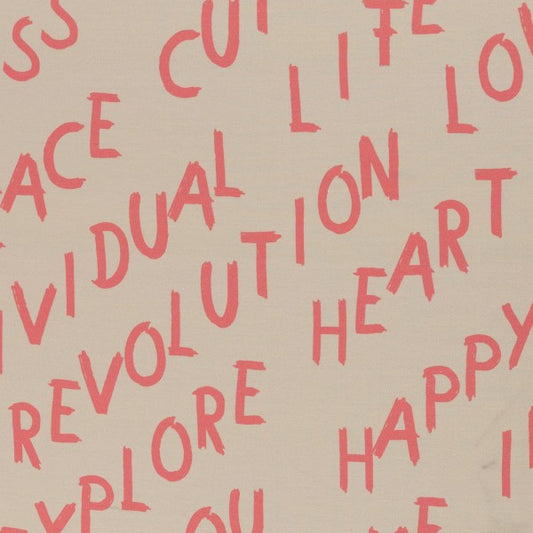 SS
CUT
LIFE
LO
ACE
IVIDUAL
REVOLUTION
HEART
HAPPY
EXPLORE
OU
HE
I